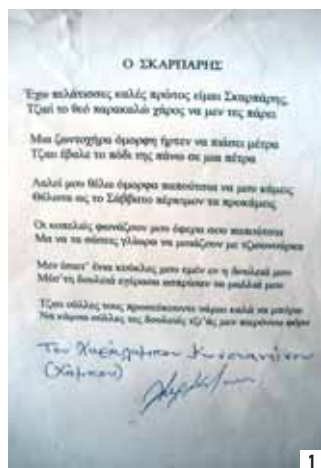 Ο ΣΚΑΡΠΑΡΗΣ
Έχω πελάτισσες καλές πρώτος είμαι Σκαρπάρης,
Τζιαί το θεό παρακαλώ χάρος να μεν τες πάρει
Μια ζωντοχήρα όμορφη ήρτεν να πιάσει μέτρα
Τζιαι έβαλε το πόδι της πάνω σε μια πέτρα
Λαλεί μου θέλω όμορφα παπούτσια να μου κάμεις
Θέλοντα ως το Σάββατο πέρκιμον τα προκάμεις
Οι κοπελιές φωνάζουν μου έφερα σου παπούτσια
Μα να τα σάσεις γλήορα να μοιάζουν με
Μεν είπετ' ένας μου εμέν εν η δουλειά μου
Μέσ' τη δουλειά εγέρασα ασπρίσαν τα μαλλιά μου
Τζιαι ούλλες τους καλά να
Να κάμνω ούλλες τις δουλειές τζι' ας μεν παίρνουν
Του Χαράλαμπου Κωνσταντίνου
(Χάμπου)
1